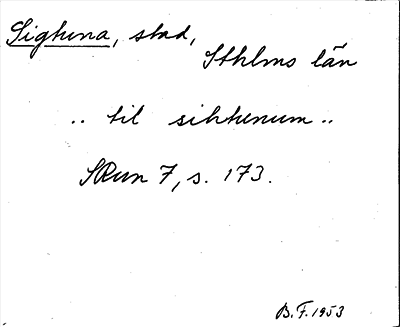 Sigtuna, stad,
Sthlms län
.. til sihtunum ..
SRun 7, s. 173.
B.F. 1953